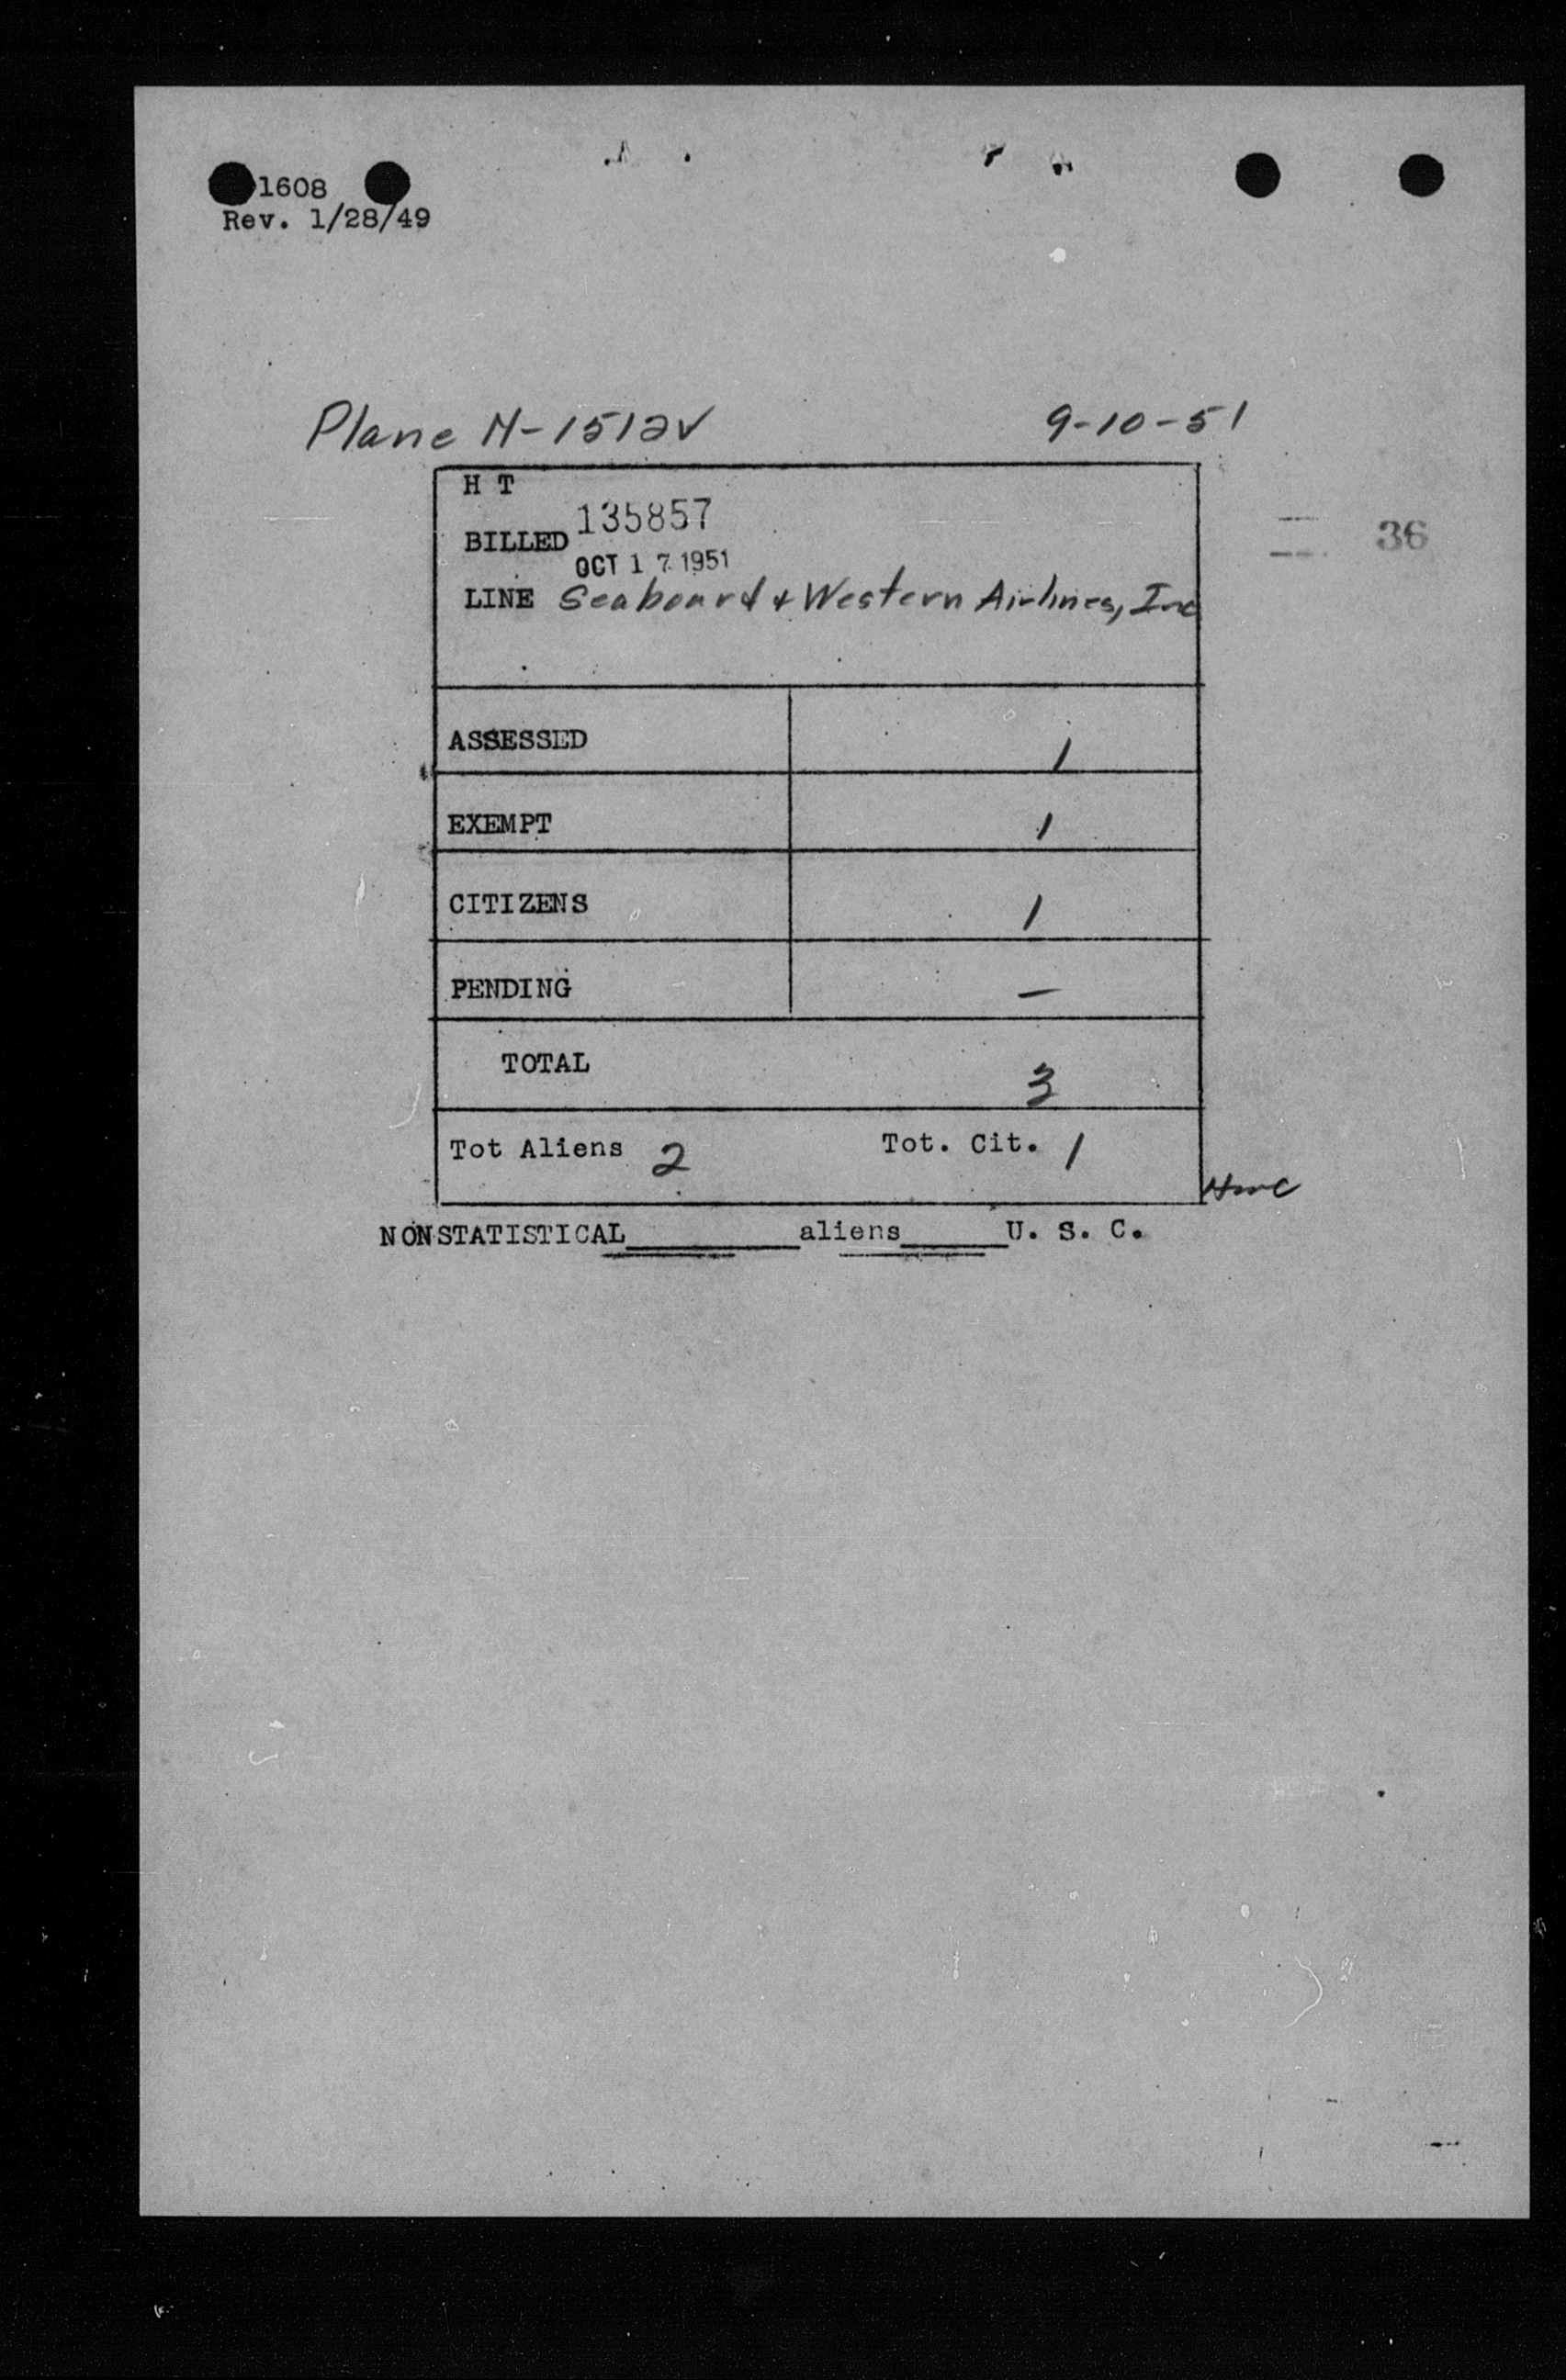 1608
Rev. 1/28/49
Plane N-1512V 9-10-51
H T
135857
BILLED
OCT 17 1951
LINE Seaboard & Western Airlines, Inc
36
ASSESSED 1
EXEMPT 1
CITIZENS 1
PENDING —
TOTAL 3
Tot Aliens 2 Tot. Cit. 1
NONSTATISTICAL______aliens____U. S. C.